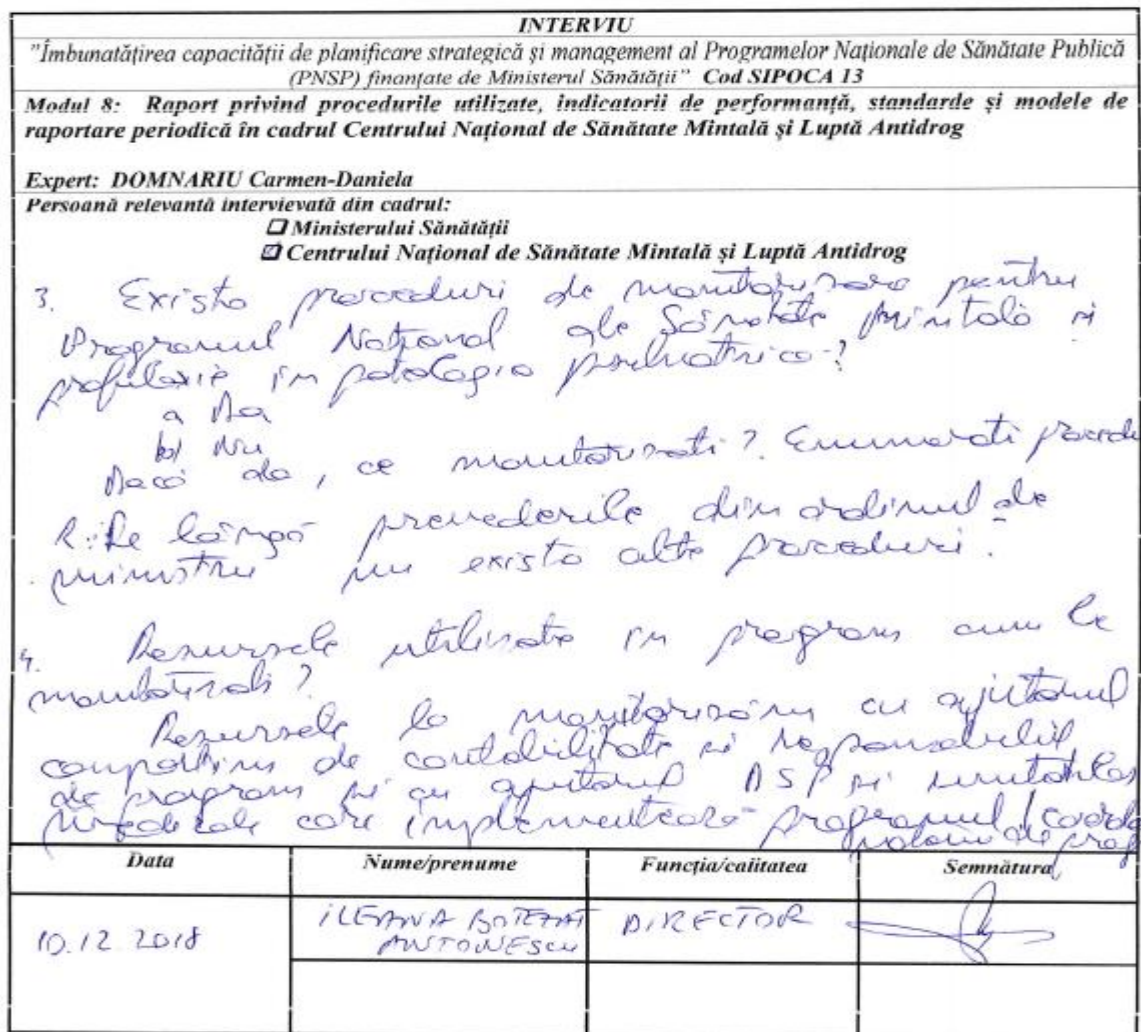 INTERVIU
"Îmbunatățirea capacității de planificare strategică și management al Programelor Naționale de Sănătate Publică
(PNSP) finanțate de Ministerul Sănătății" Cod SIPOCA 13
Modul 8: Raport privind procedurile utilizate, indicatorii de performanță, standarde și modele de
raportare periodică în cadrul Centrului Național de Sănătate Mintală și Luptă Antidrog
Expert: DOMNARIU Carmen-Daniela
Persoană relevantă intervievată din cadrul:
Ministerului Sănătății
Centrului Național de Sănătate Mintală și Luptă Antidrog
3. Exista proceduri de monitorizare pentru
Programul Național de Sănatate Mintală si
profilaxie in patologia psihiatrica?
a Da
b) Nu
Dacă da, ce monitorizati? Enumerati
R: Pe lângă prevederile din ordinul de
ministru nu exista alte proceduri.
4. Resursele utilizate in program cum le
monitorizati?
Resursele le monitorizăm cu ajutorul
de contabilitate si
de program si cu ajutorul DSP si unitatilor
care implementeaza programul
de
Data Nume/prenume Funcția/caiitatea Semnătura
10.12.2018 ILEANA BOTEZAT DIRECTOR
ANTONESCU